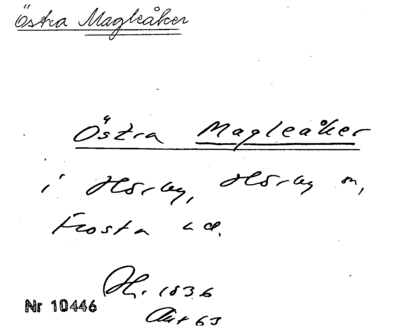 Östra Magleåker
Östra Magleåker
i Hörby, Hörby sn,
Frosta hd.
H. 1836
Akt 63
Nr 10446